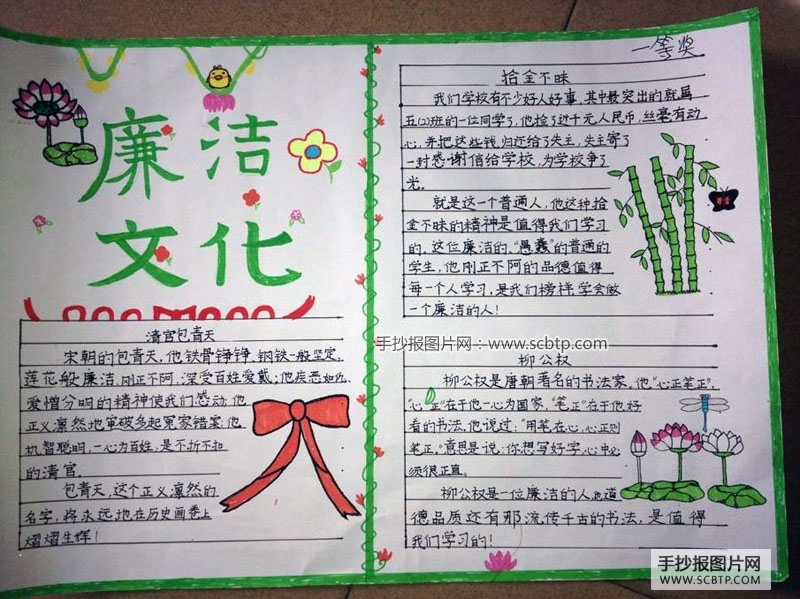 廉洁
文化
清官包青天
宋朝的包青天,他铁骨铮铮,钢铁一般坚定,
莲花般廉洁,刚正不阿,深受百姓爱戴;他疾恶如仇,
爱憎分明的精神使我们感动;他
正义凛然地审破多起冤家错案;他
机智聪明,一心为百姓,是不折不扣
的清官。
包青天,这个正义凛然的
名字,将永远地在历史画卷上
熠熠生辉!
一等奖
拾金不昧
我们学校有不少好人好事,其中最突出的就属
五(2)班的一位同学了,他捡了近千元人民币,丝毫有动
心,并把这些钱,归还给了失主,失主寄了
一封感谢信给学校,为学校争了
光。
就是这一个普通人,他这种拾
金不昧的精神是值得我们学习
的,这位廉洁的,“愚蠢”的普通的
学生,他刚正不阿的品德值得
每一个人学习,是我们榜样,学会做
一个廉洁的人!
手抄报图片网:www.scbtp.com
柳公权
柳公权是唐朝著名的书法家,他“心正笔正”,
“心正”在于他一心为国家,“笔正”在于他好
看的书法,他说过:“用笔在心,心正则
笔正,”意思是说:你想写好字,心中必
须很正直。
柳公权是一位廉洁的人,他道
德品质还有那流传千古的书法,是值得
我们学习的!
手抄报图片网
WWW.SCBTP.COM